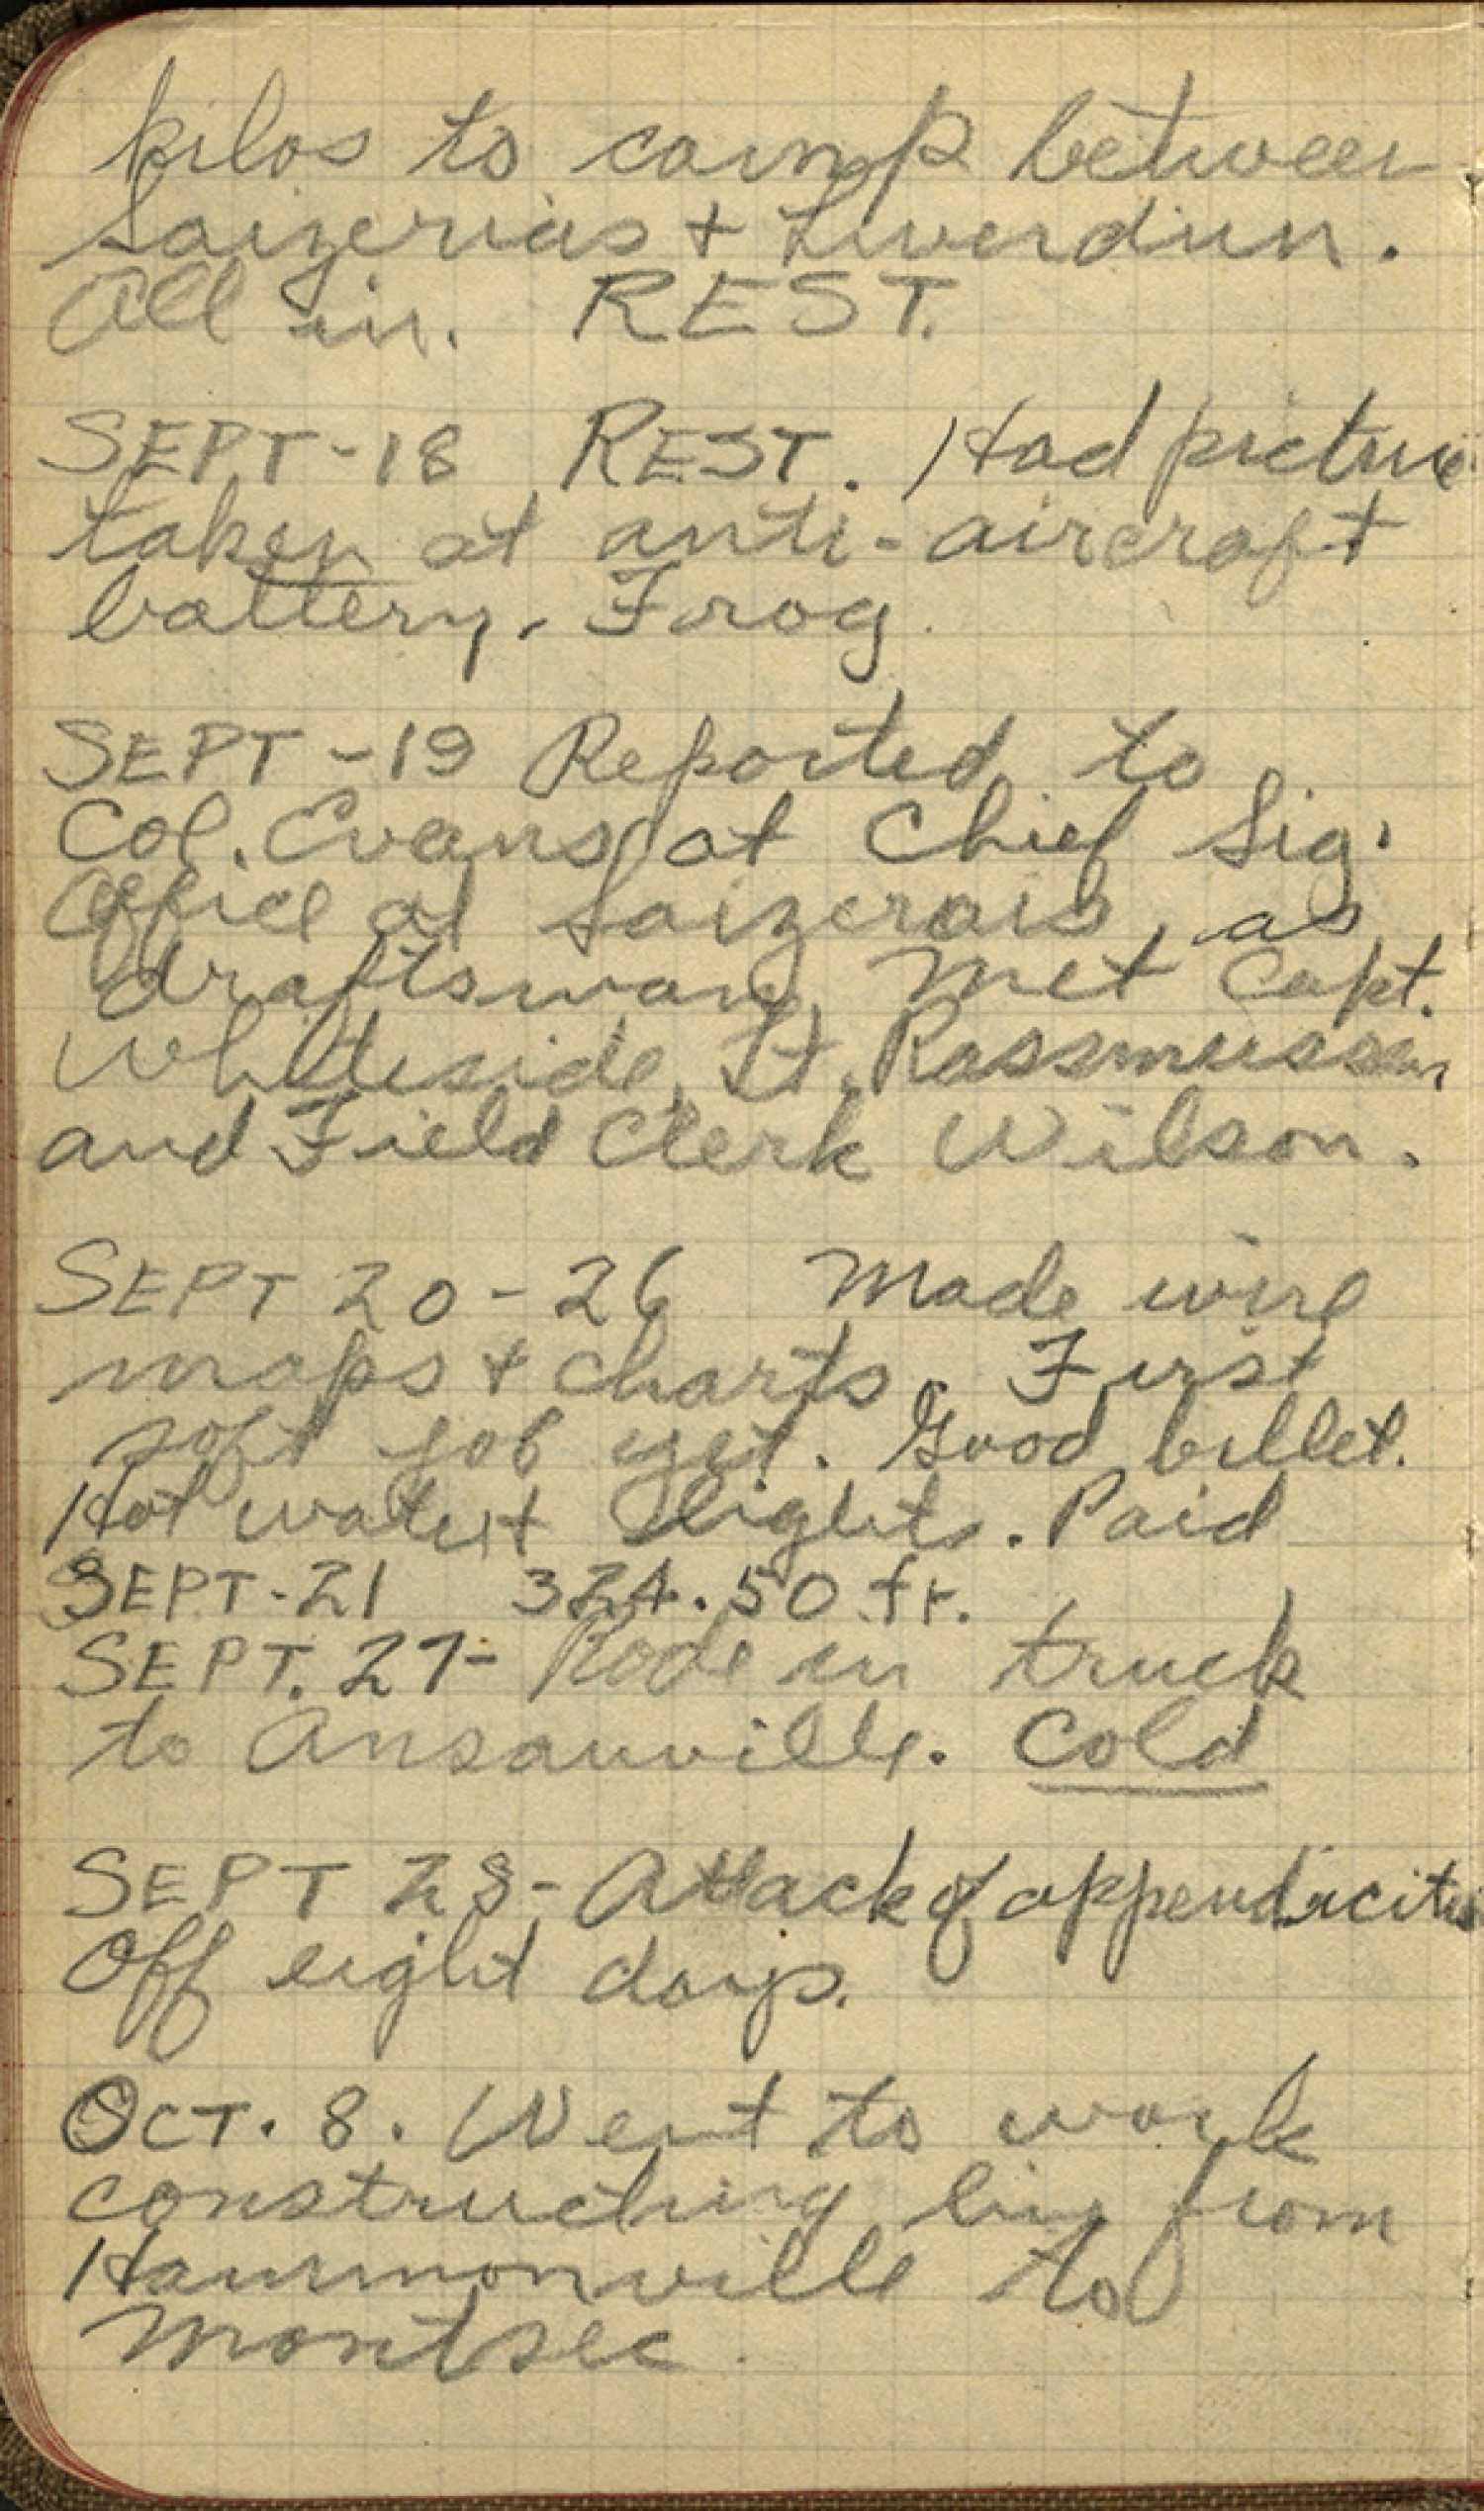 kilos to camp between
Saizerias + Liverdun.
All in. REST.
SEPT-18 REST. Had picture
taken at anti-aircraft
battery. Frog.
SEPT-19 Reported to
Col. Evans at Chief Sig.
Office at Saizerais, as
draftsman. Met Capt.
Whiteside, Lt. Rassmussen
and Field Clerk Wilson.
SEPT 20-26 Made wire
maps + charts. First
soft job yet. Good billet.
Hot water + lights. Paid
SEPT-21 324.50 fr.
SEPT. 27- Rode in truck
to Ansauville. Cold
SEPT 28- Attack of appendicitis
Off eight days.
OCT. 8. Went to work
constructing line from
Hammonville to
Montsec.